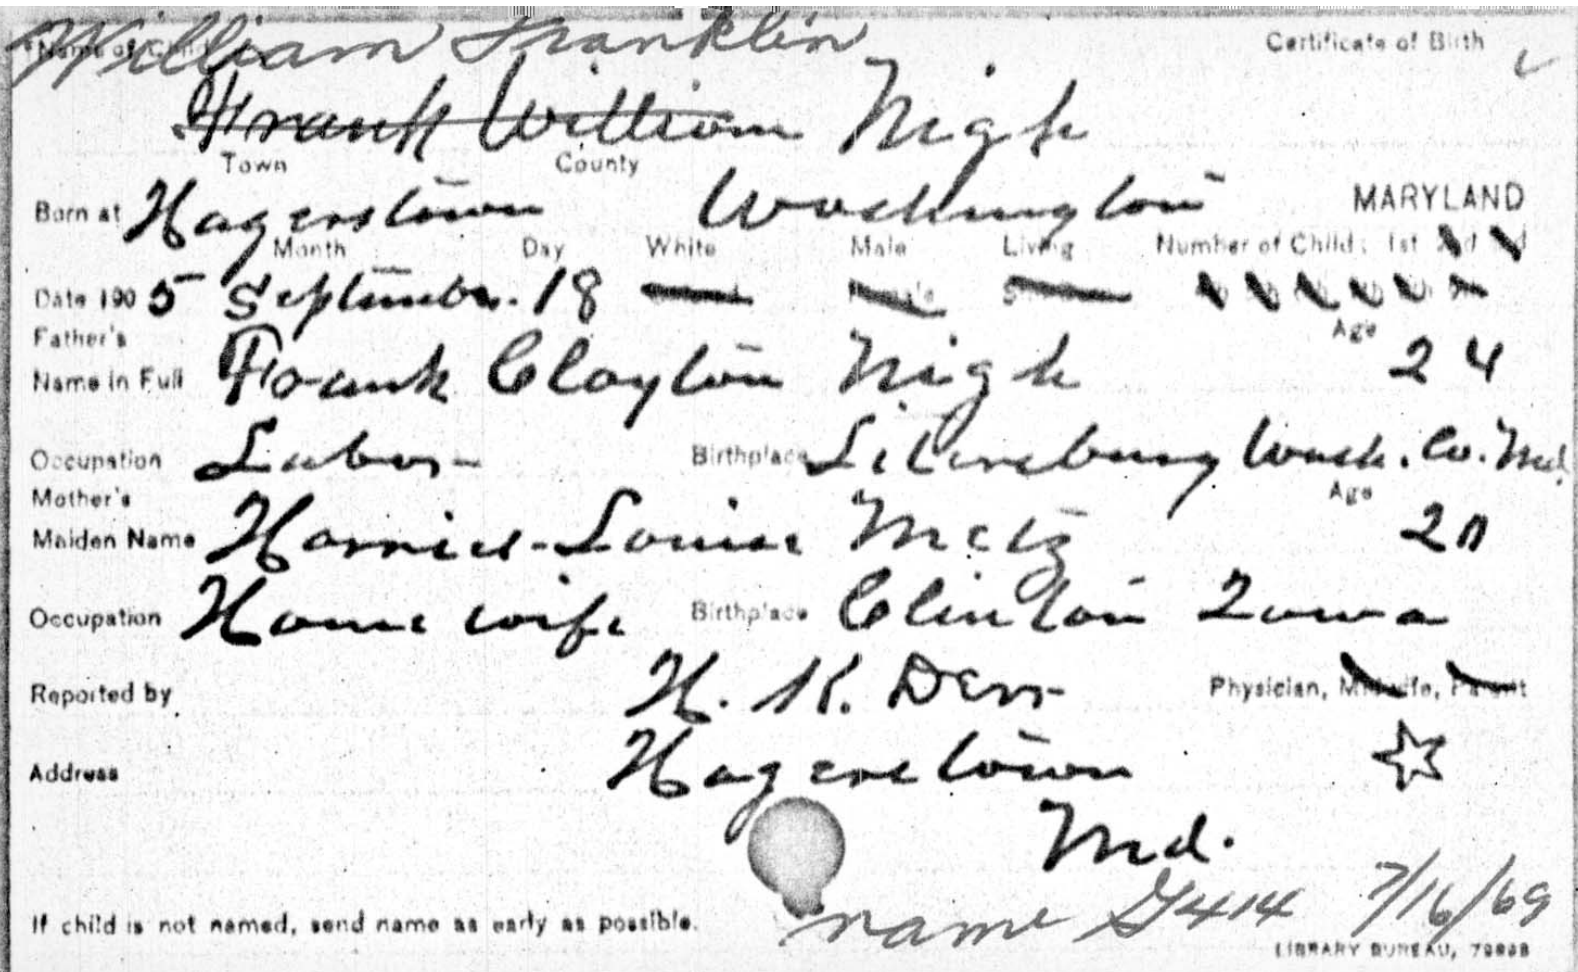 William Franklin
Name of Child Certificate of Birth
Frank William Nigh
Town County
Born at Hagerstown Washington MARYLAND
Month Day White Male Living Number of Child: 1st 2nd 3rd
Date 1905 September 18
Father's Age
Name in Full Frank Clayton Nigh 24
Occupation Labor Birthplace Litersburg Wash. Co. Md.
Mother's Age
Maiden Name Harriet-Louise Metz 20
Occupation House wife Birthplace Clinton Iowa
Reported by H. K. Derr Physician, Midwife, Parent
Address Hagerstown
Md.
If child is not named, send name as early as possible. name G414 7/16/69
LIBRARY BUREAU,